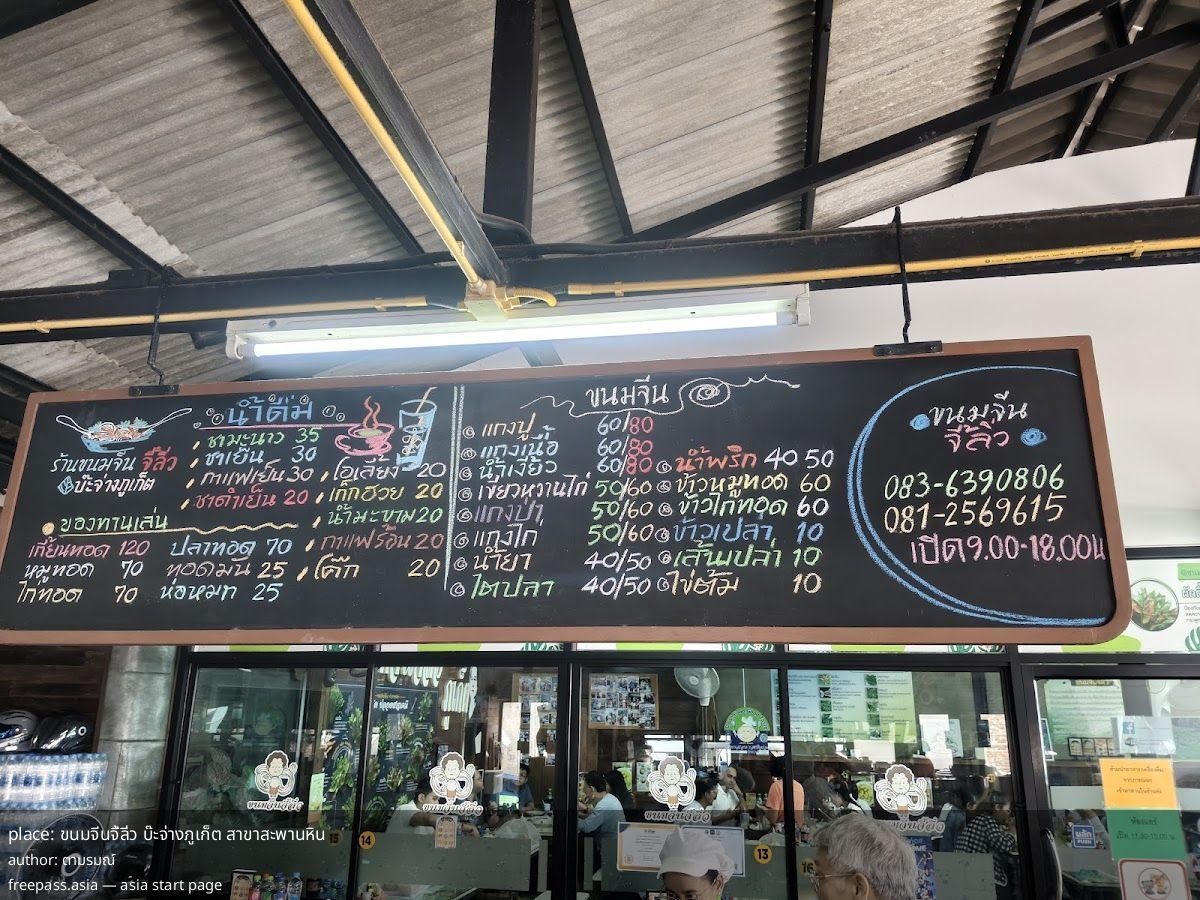 ร้านขนมจีน จี้ลิ่ว
บ๊ะจ่างภูเก็ต
น้ำดื่ม
ชามะนาว 35
ชาเย็น 30
กาแฟเย็น 30
ชาดำเย็น 20
โอเลี้ยง 20
เก็กฮวย 20
น้ำมะขาม 20
กาแฟร้อน 20
โค๊ก 20
ของทานเล่น
เกี้ยนทอด 120
หมูทอด 70
ไก่ทอด 70
ปลาทอด 70
ทอดมัน 25
ห่อหมก 25
ขนมจีน
แกงปู 60/80
แกงเนื้อ 60/80
น้ำเงี้ยว 60/80
เขียวหวานไก่ 50/60
แกงป่า 50/60
แกงไก่ 50/60
น้ำยา 40/50
ไตปลา 40/50
น้ำพริก 40 50
ข้าวหมูทอด 60
ข้าวไก่ทอด 60
ข้าวเปล่า 10
เส้นเปล่า 10
ไข่ต้ม 10
ขนมจีน
จี้ลิ่ว
083-6390806
081-2569615
เปิด 9.00-18.00น
14
13
ผลัก
PUSH
place: ขนมจีนจี้ลิ่ว บ๊ะจ่างภูเก็ต สาขาสะพานหิน
author: ตามรมณ์
freepass.asia — asia start page